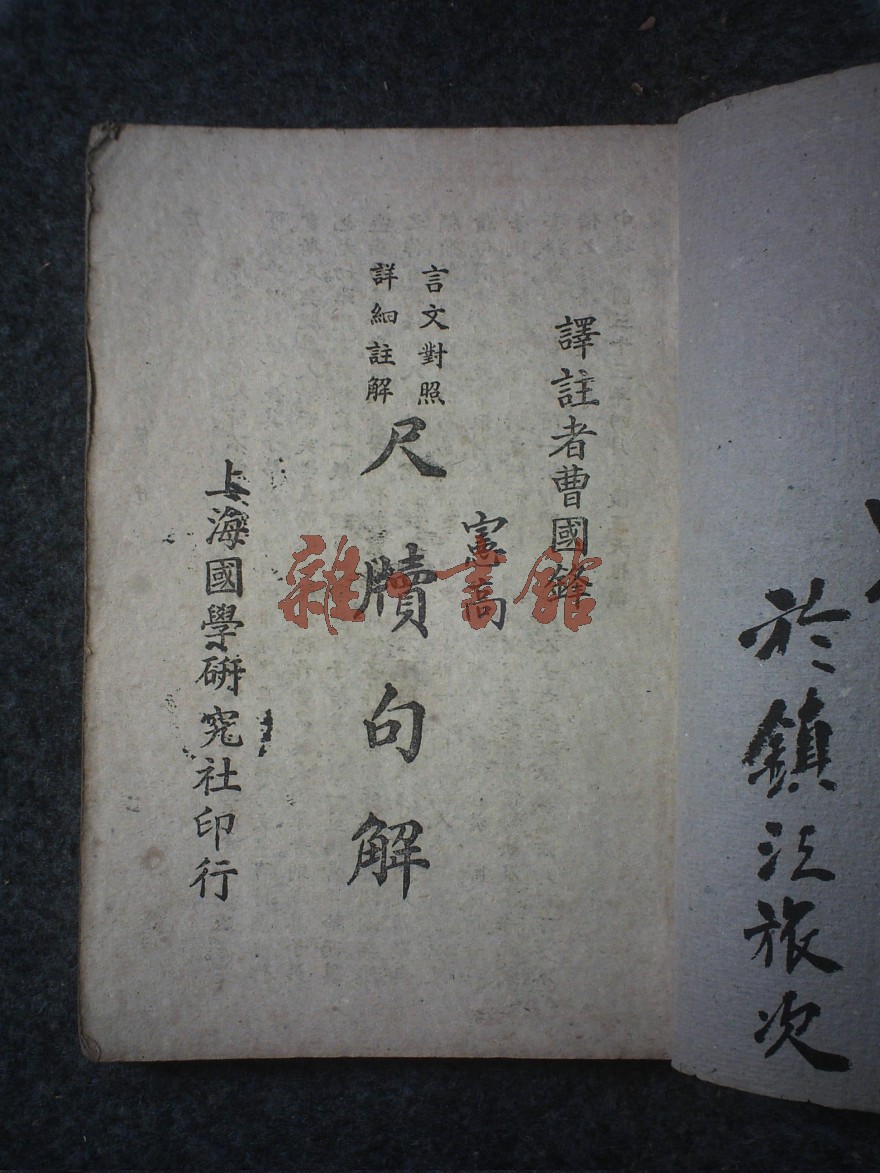 於鎮江旅次
譯註者曹國鋒
憲高
言文對照
詳細註解
尺牘句解
上海國學研究社印行
雜書館